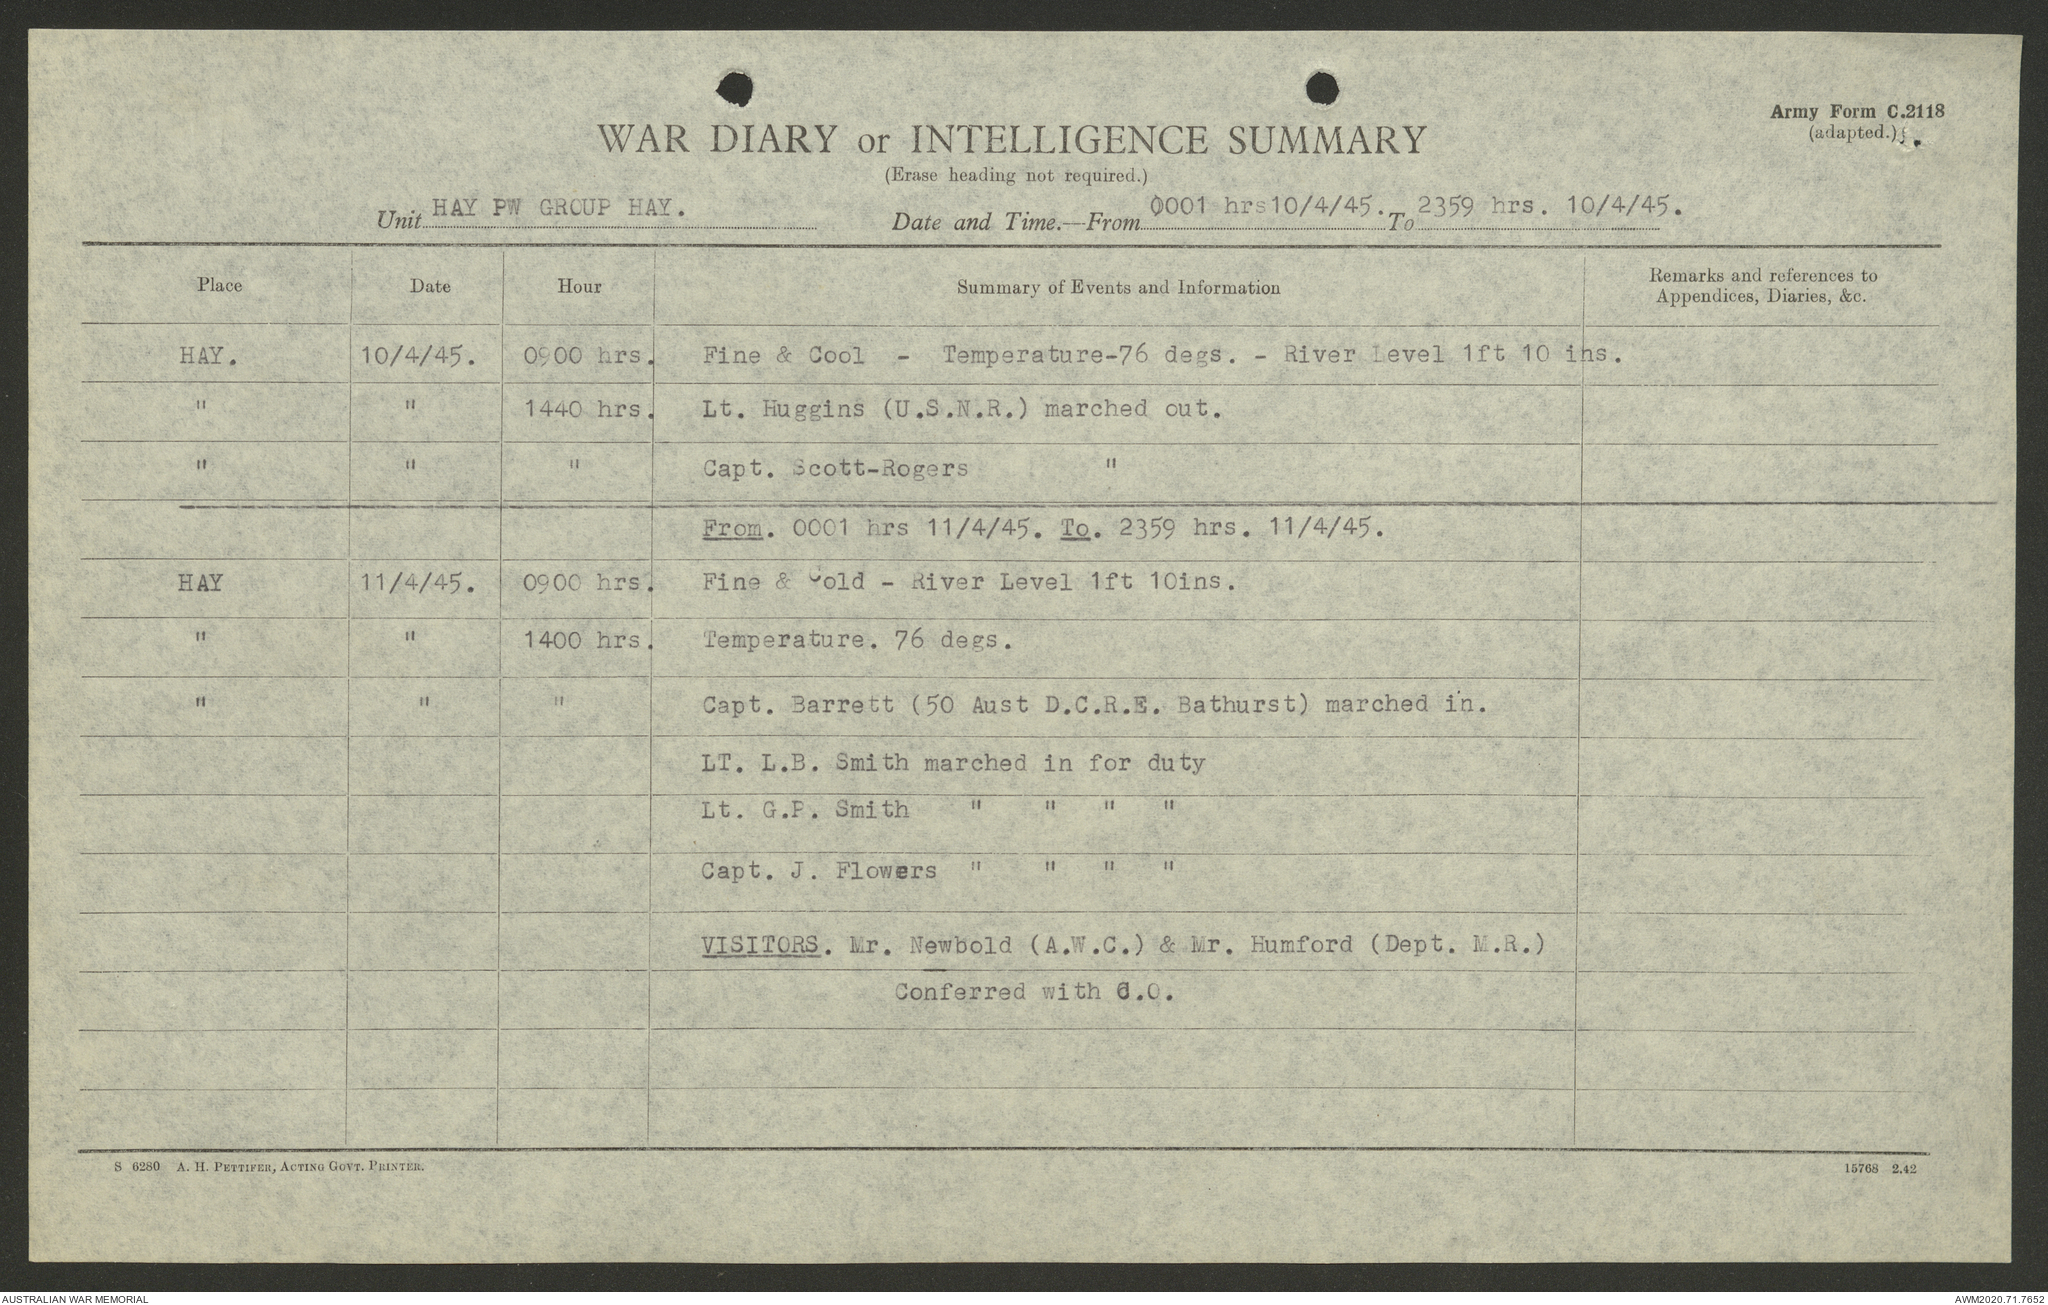 Army Form C.2118
(adapted.)
WAR DIARY or INTELLIGENCE SUMMARY
(Erase heading not required.)
Unit HAY PW GROUP HAY. Date and Time.—From 0001 hrs10/4/45. To 2359 hrs. 10/4/45.
Place Date Hour Summary of Events and Information Remarks and references to
Appendices, Diaries, &c.
HAY. 10/4/45. 0900 hrs. Fine & Cool - Temperature-76 degs. - River Level 1ft 10 ins.
" " 1440 hrs. Lt. Huggins (U.S.N.R.) marched out.
" " " Capt. Scott-Rogers "
From. 0001 hrs 11/4/45. To. 2359 hrs. 11/4/45.
HAY 11/4/45. 0900 hrs. Fine & Cold - River Level 1ft 10ins.
" " 1400 hrs. Temperature. 76 degs.
" " " Capt. Barrett (50 Aust D.C.R.E. Bathurst) marched in.
LT. L.B. Smith marched in for duty
Lt. G.P. Smith " " " "
Capt. J. Flowers " " " "
VISITORS. Mr. Newbold (A.W.C.) & Mr. Humford (Dept. M.R.)
Conferred with C.O.
S 6280 A. H. PETTIFER, ACTING GOVT. PRINTER. 15768 2.42
AUSTRALIAN WAR MEMORIAL AWM2020.71.7652